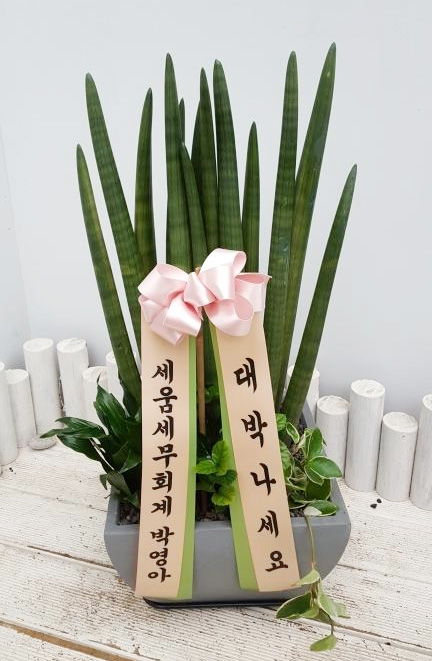 세움세무회계 박영아
대박나세요